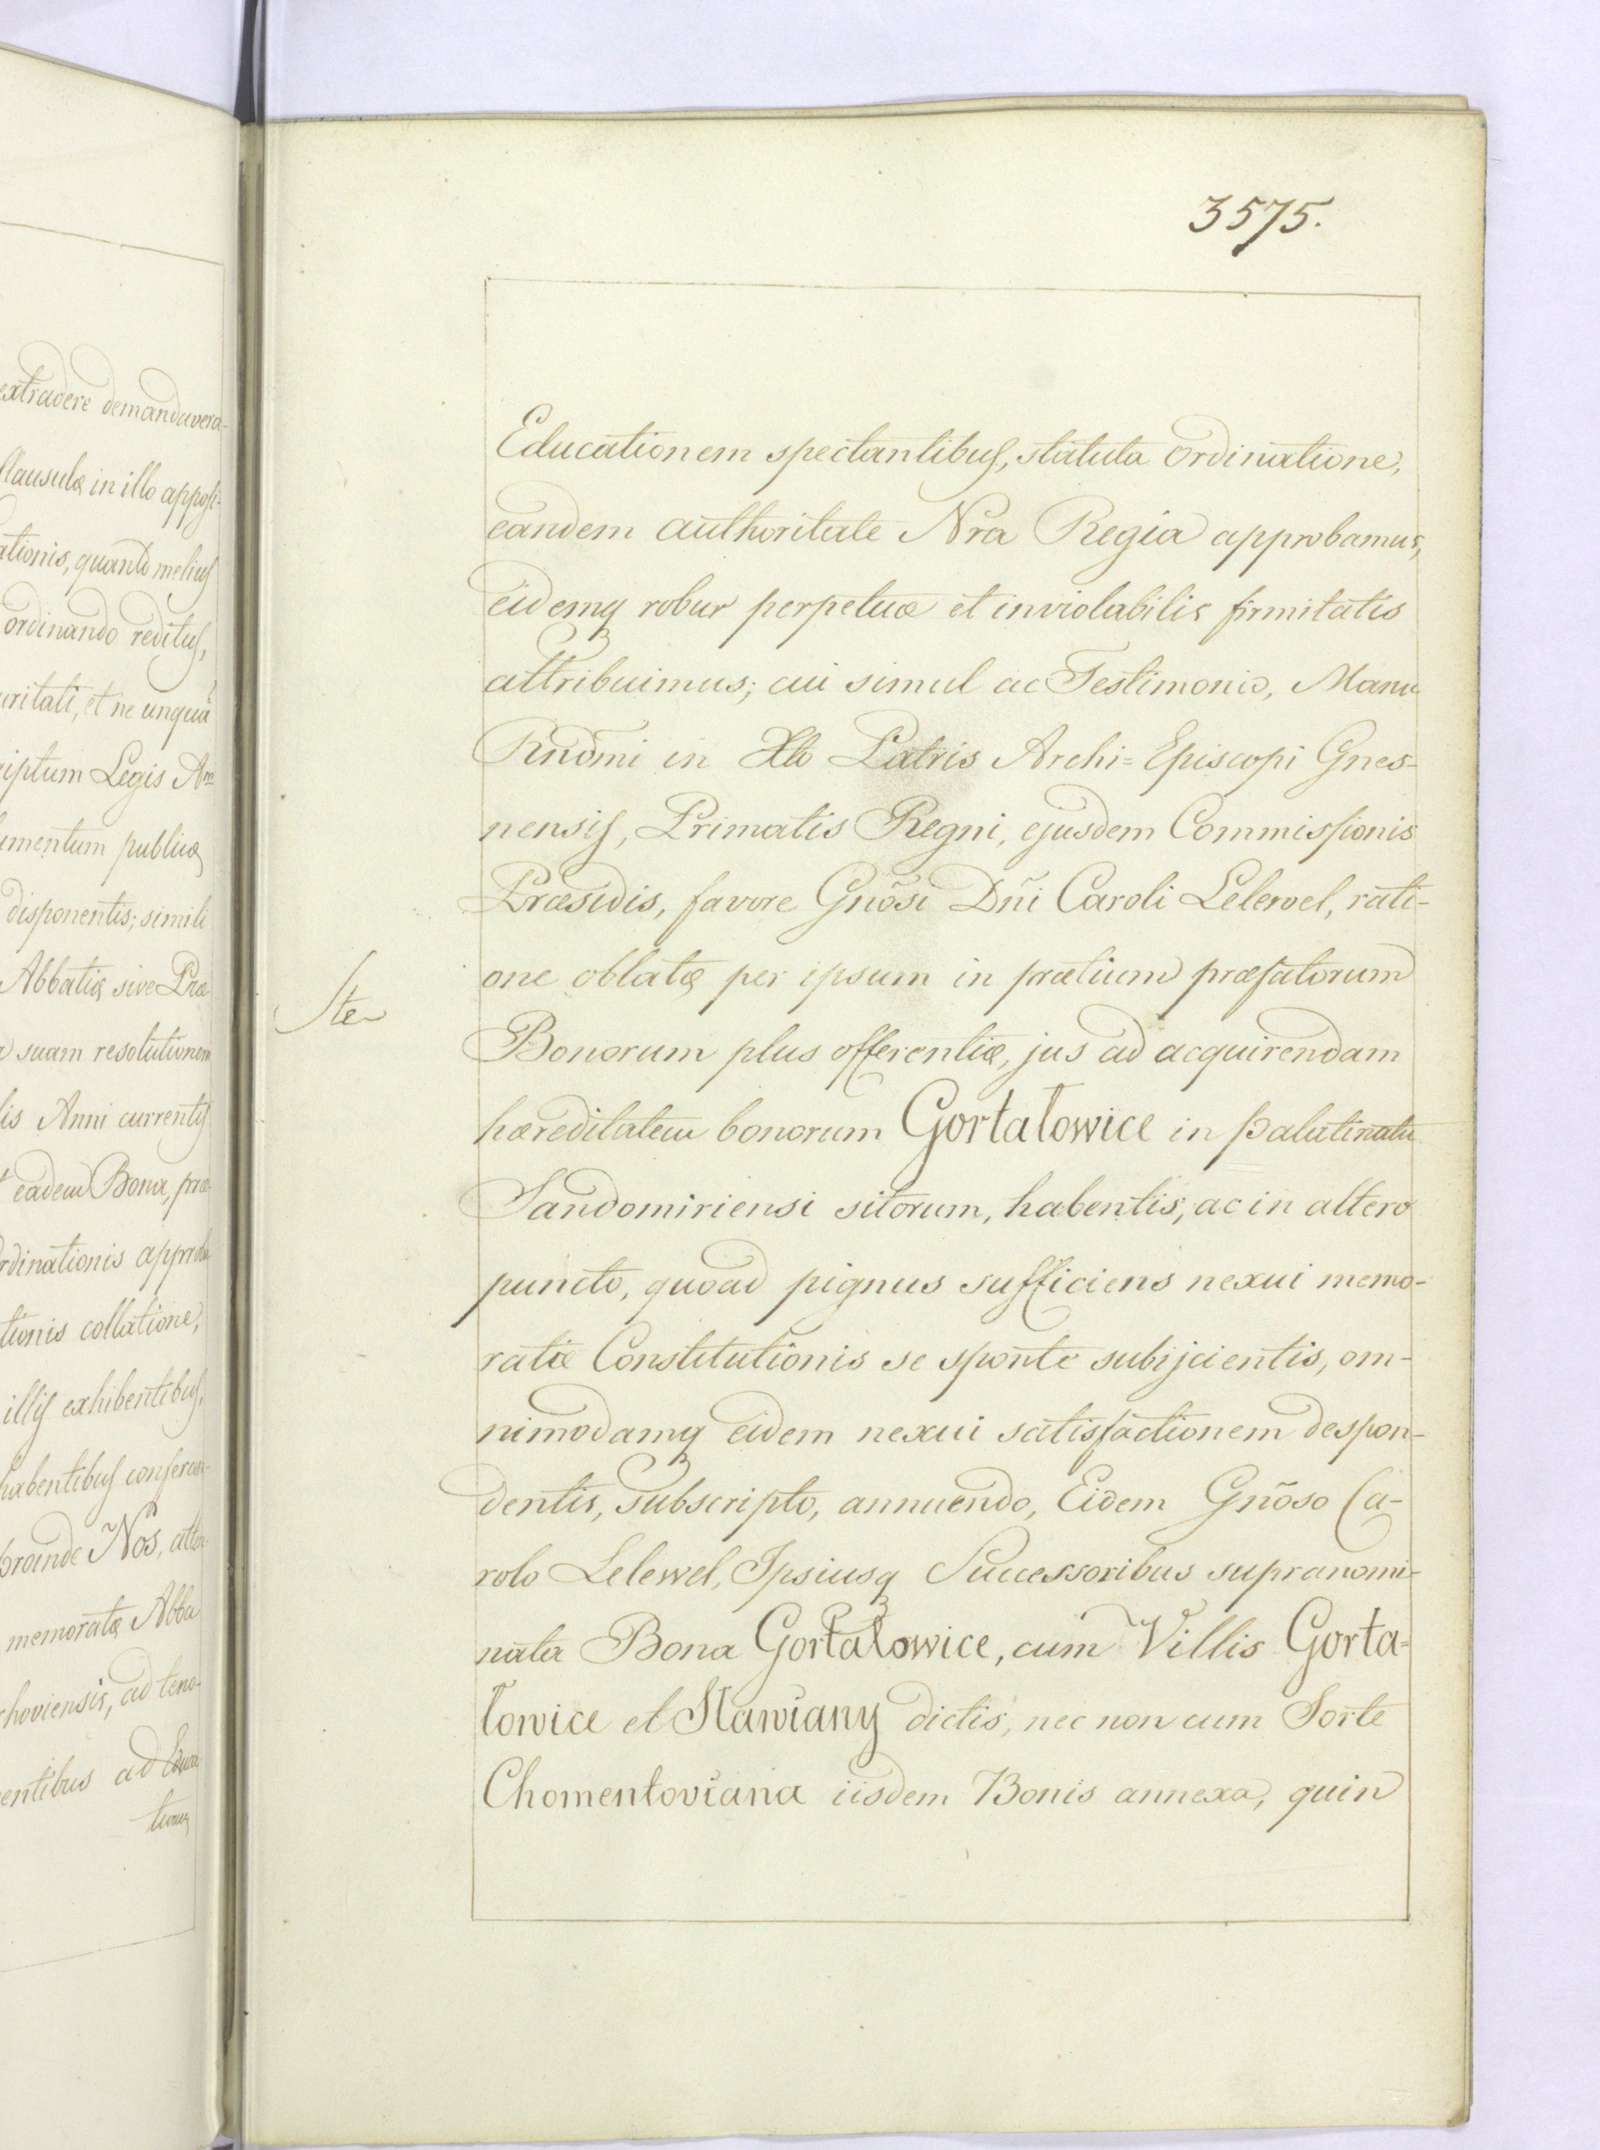 extradere demandavera-
Clausulæ in illo apposi-
ationis, quanto melius
ordinando reditus,
uritati, et ne unquã
riptum Legis
umentum publicæ
disponentis; simili
Abbatiæ sive Præ
suam resolutionem
lis Anni currentis
eadem Bona, præ-
rdinationis approba
tionis collatione,
illis exhibentibus,
habentibus conferen-
proinde Nos, atten
memoratæ Abba
choviensis, ad teno-
entibus ad Educa
tionem
3575.
Educationem spectantibus, statuta ordinatione,
eandem authoritate Nra Regia approbamus,
eidemq robur perpetuæ et inviolabilis firmitatis
attribuimus; cui simul ac Testimonio, Manu
Rndmi in Xto Patris Archi=Episcopi Gnes-
nensis, Primatis Regni, ejusdem Commissionis
Præsidis, favore Gnõsi Dñi Caroli Lelewel, rati-
one oblatæ per ipsum in prætium præfatorum
Bonorum plus offerentiæ, jus ad acquirendam
hæreditatem bonorum Gortatowice in Palatinatu
Sandomiriensi sitorum, habentis, ac in altero
puncto, quoad pignus sufficiens nexui memo-
ratæ Constitutionis se sponte subijcientis, om-
nimodamq eidem nexui satisfactionem despon-
dentis, subscripto, annuendo, Eidem Gnõso Ca-
rolo Lelewel, Ipsiusq Successoribus supranomi-
nata Bona Gortatowice, cum Villis Gorta-
towice et Stawiany dictis, nec non cum Sorte
Chomentoviana iisdem Bonis annexa, quin